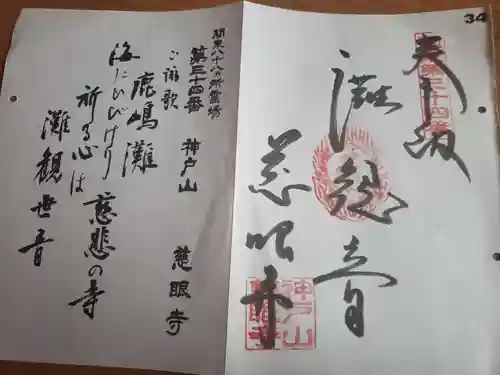 34
奉納
第三十四番
灘観音
慈眼寺
神戸山
慈眼寺
関東八十八カ所霊場
第三十四番 神戸山 慈眼寺
ご詠歌
鹿嶋灘
海にひびけり 慈悲の寺
祈る心は
灘観世音